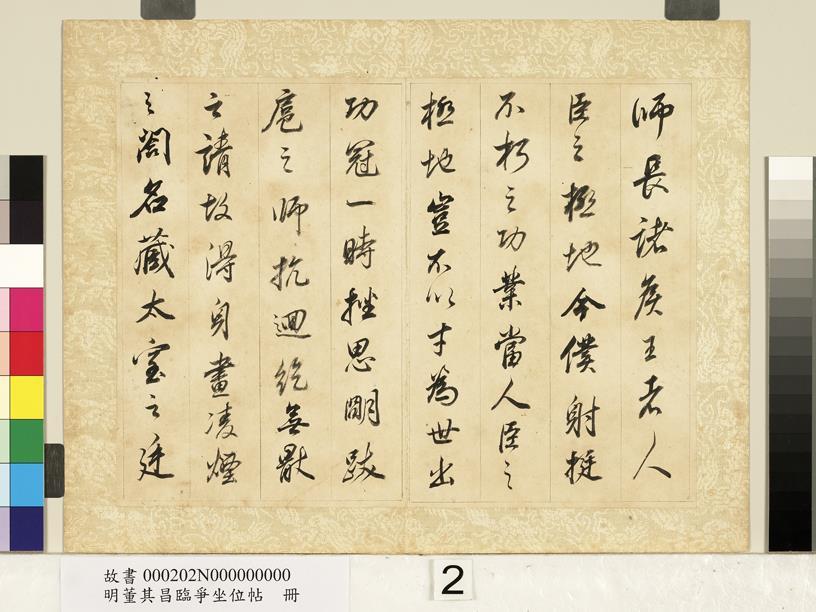 師長諸侯王者人
臣之極地今僕射挺
不朽之功業當人臣之
極地豈不以才為世出
功冠一時挫思明跋
扈之師抗迴紇無猒
之請故得身畫凌煙
之閣名藏太室之廷
故書 000202N000000000
明董其昌臨爭坐位帖 冊
2